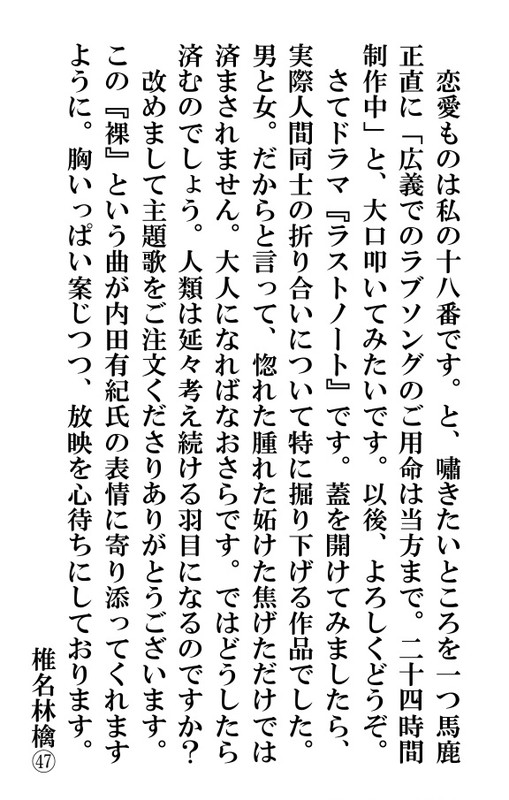 恋愛ものは私の十八番です。と、嘯きたいところを一つ馬鹿
正直に「広義でのラブソングのご用命は当方まで。二十四時間
制作中」と、大口叩いてみたいです。以後、よろしくどうぞ。
さてドラマ『ラストノート』です。蓋を開けてみましたら、
実際人間同士の折り合いについて特に掘り下げる作品でした。
男と女。だからと言って、惚れた腫れた妬けた焦げただけでは
済まされません。大人になればなおさらです。ではどうしたら
済むのでしょう。人類は延々考え続ける羽目になるのですか？
改めまして主題歌をご注文くださりありがとうございます。
この『裸』という曲が内田有紀氏の表情に寄り添ってくれます
ように。胸いっぱい案じつつ、放映を心待ちにしております。
椎名林檎㊼